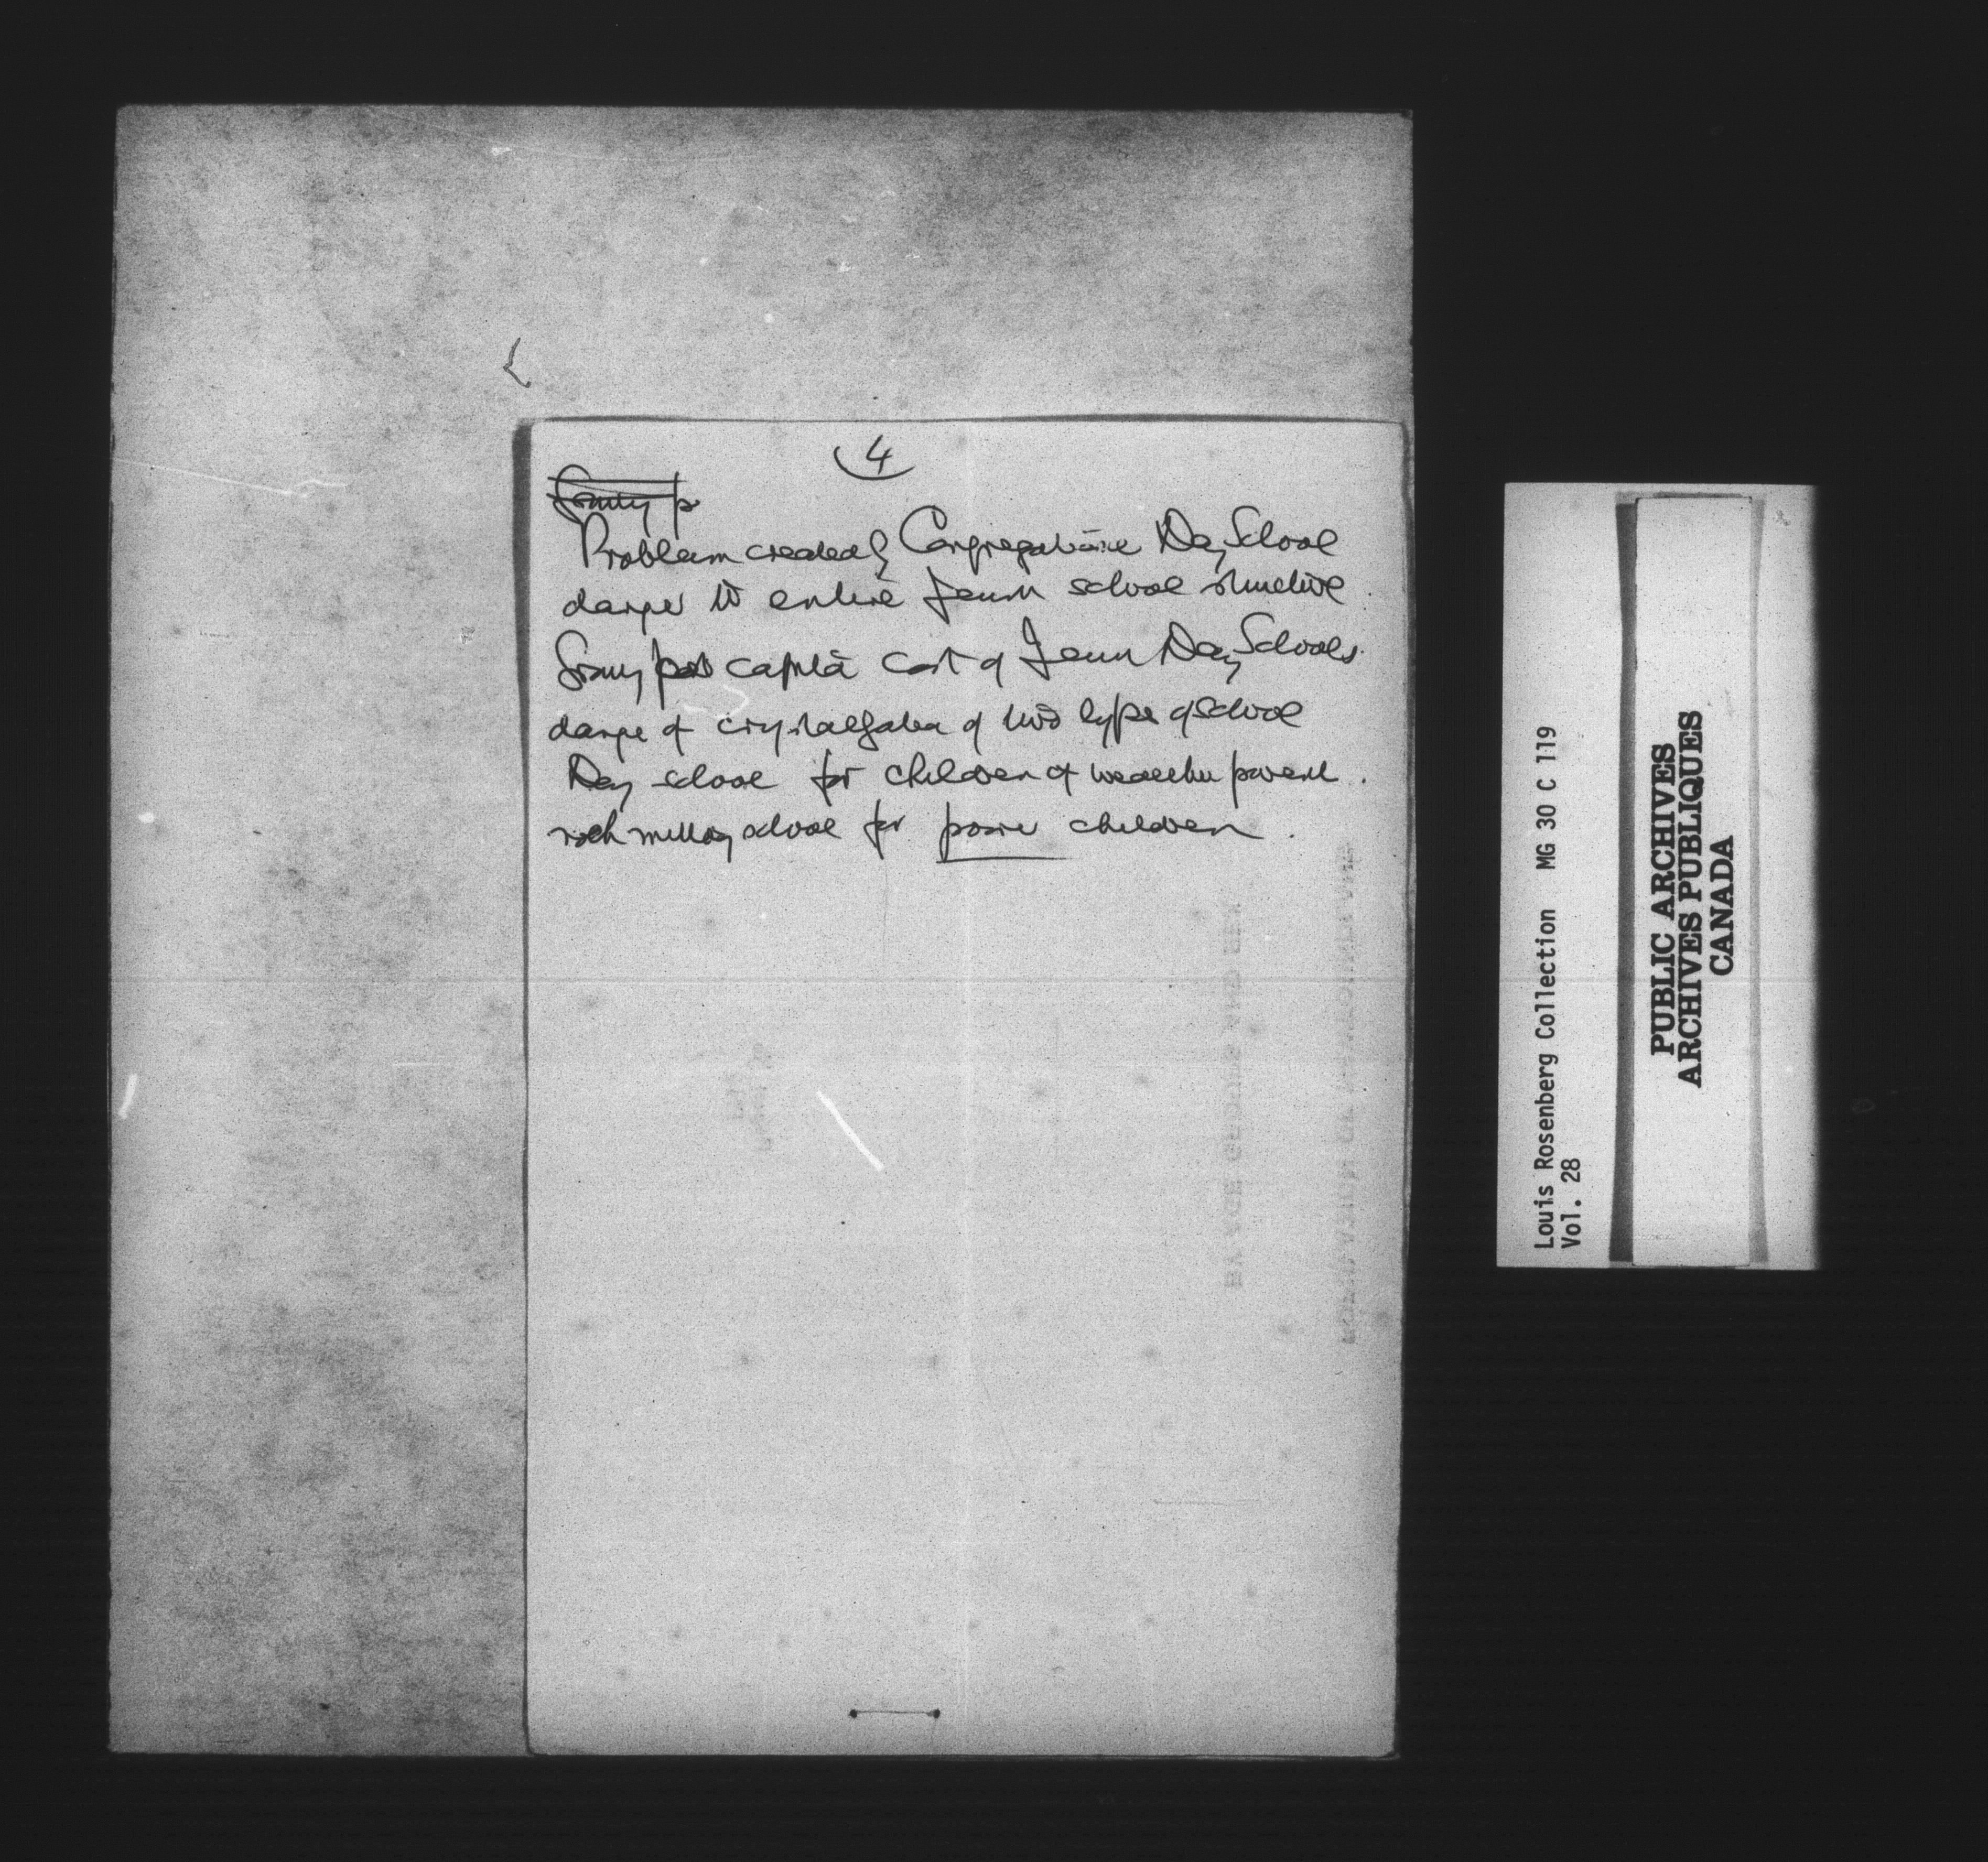 4
Growing p
Problem created by Congregational Day School
danger to entire Jewish school structure.
Growing per capita cost of Jewish Day Schools.
danger of crystallization of two types of school
Day school for children of wealthier parents.
afternoon school for poorer children.
Louis Rosenberg Collection MG 30 C 119
Vol. 28
PUBLIC ARCHIVES
ARCHIVES PUBLIQUES
CANADA